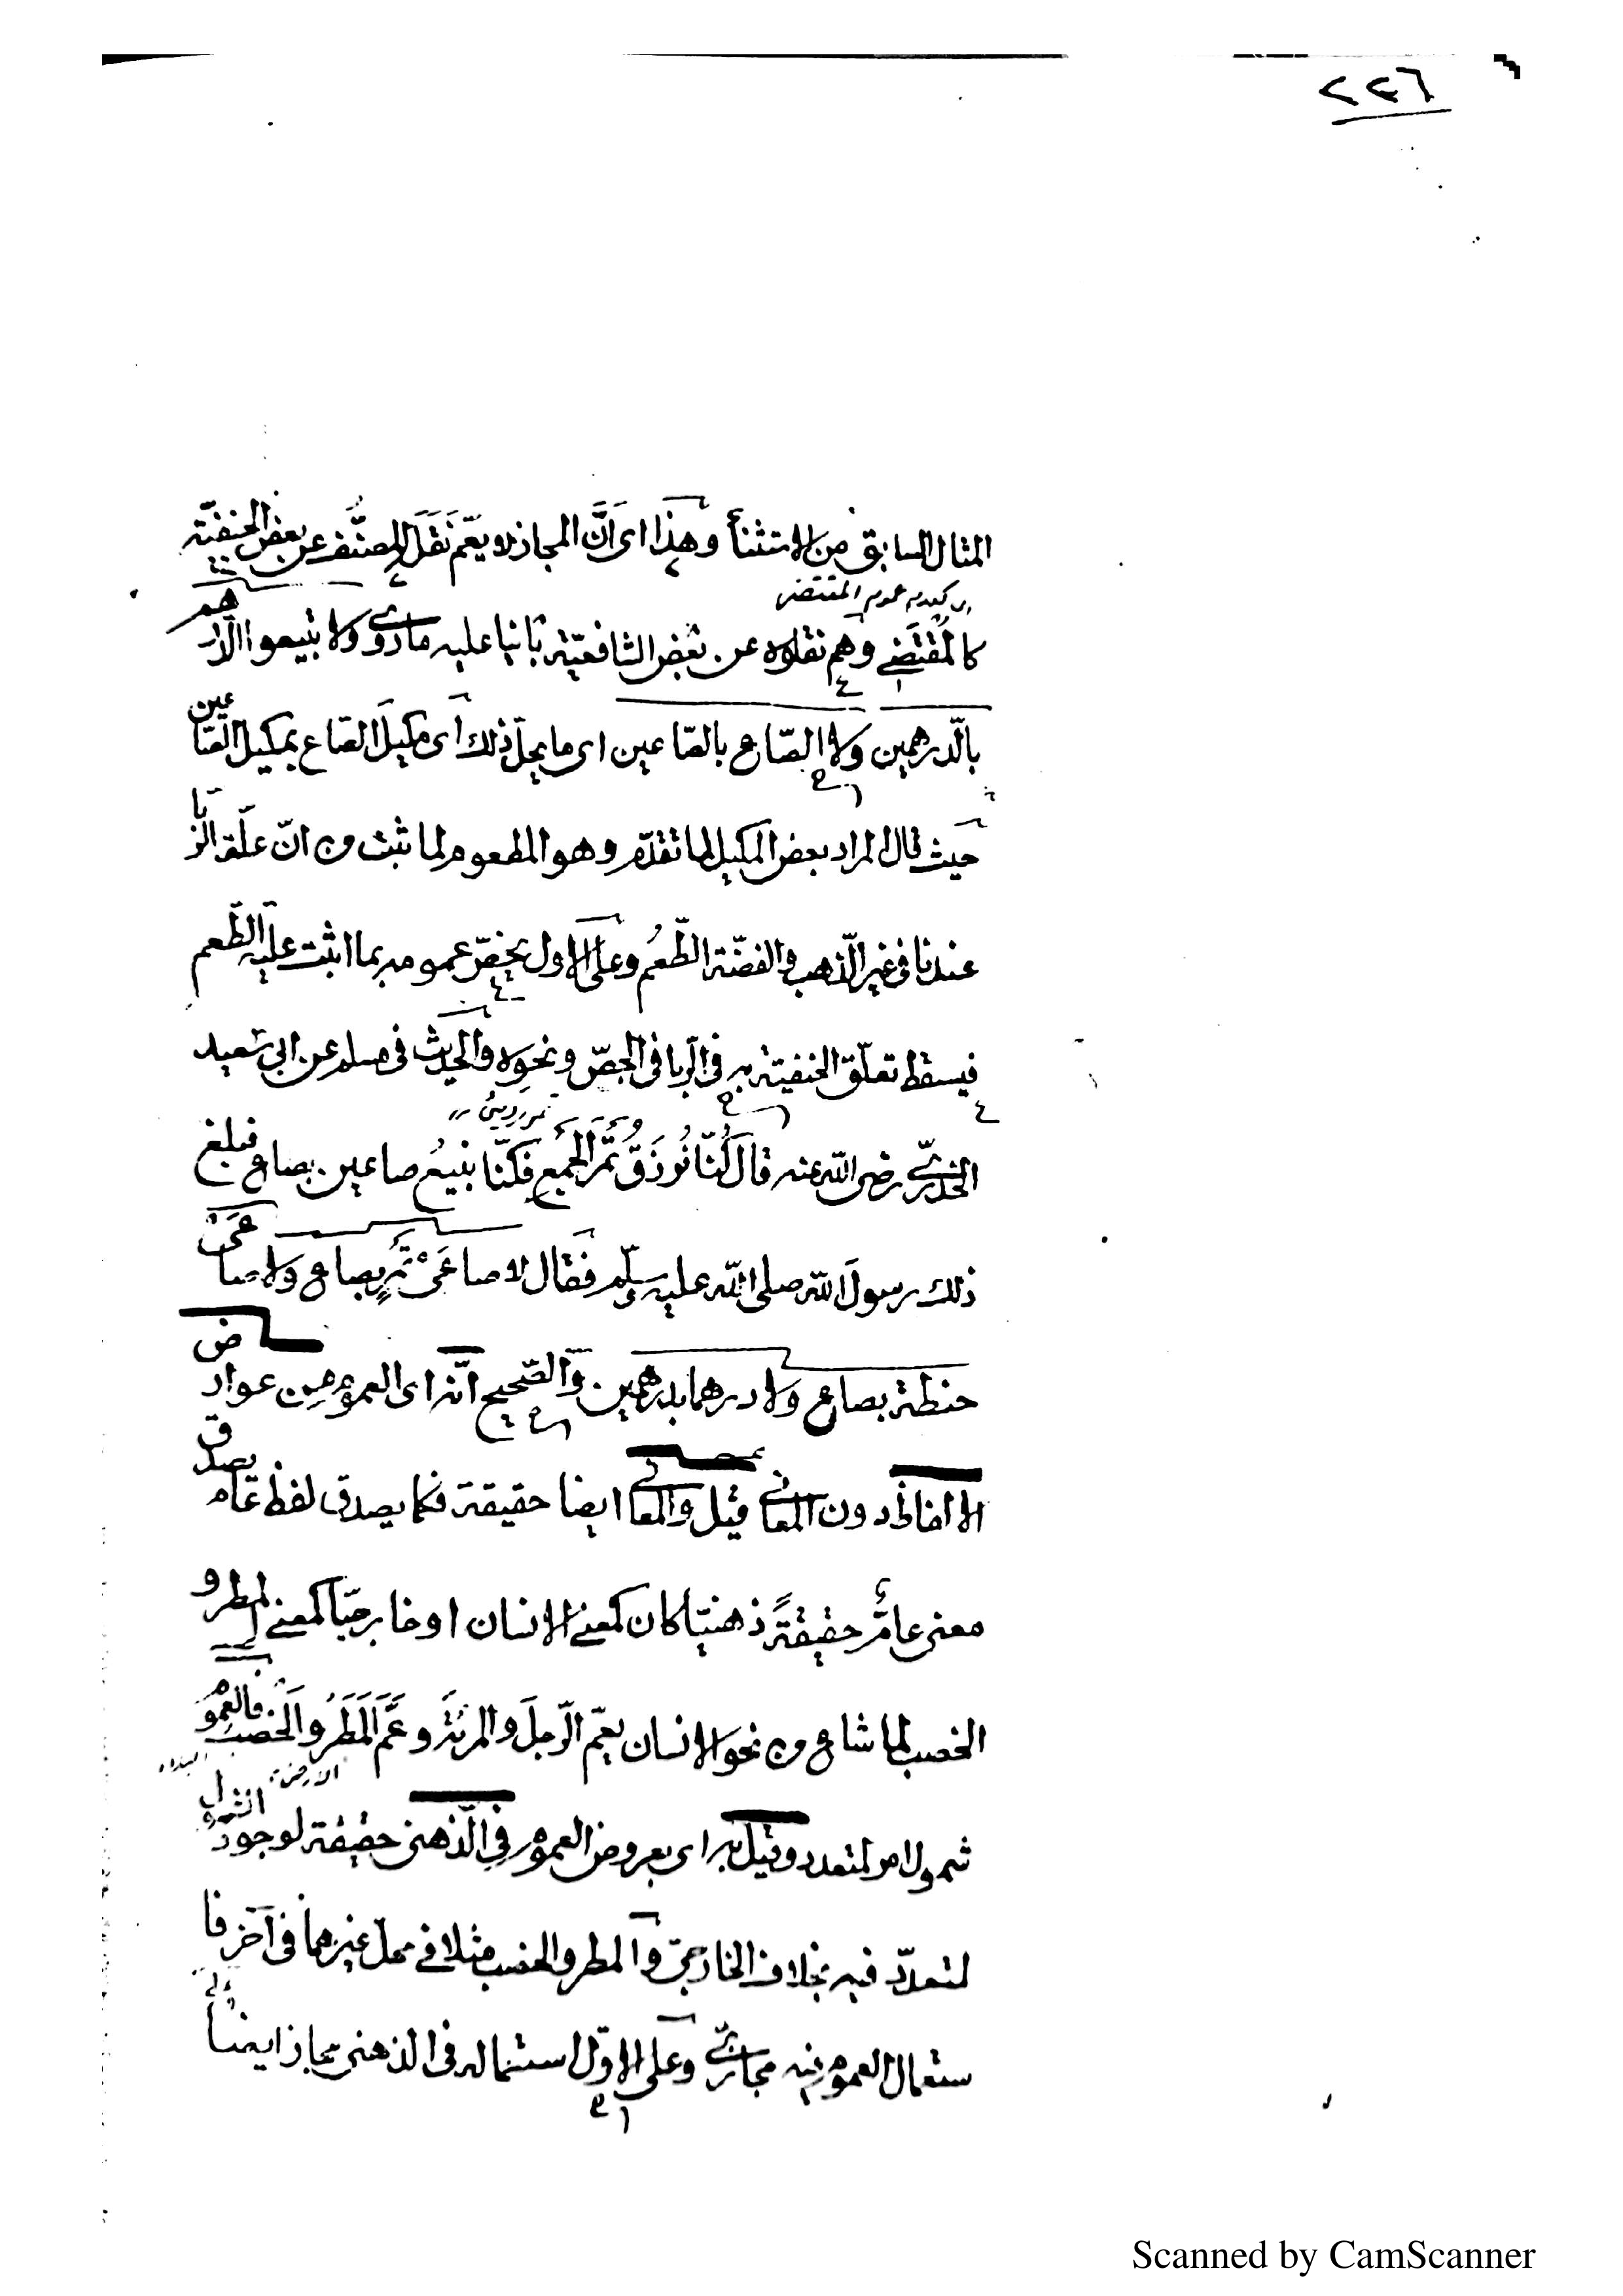 ٢٢٦
المثال السابق من الاستثناء وهذا اى اَنَّ المجاز لا يعمّ نَقَلَه المصنّف عن بعض الحنفيّة
كعدم عموم المقتضى
كالمُقْتَضٰى وهم نقلوه عن بعض الشافعيّة بانيا عليه ما رُوِىَ ولا تبيعوا الدّرهم
بالدّرهمين ولا الصّاع بالصّاعين اى ما يحلّ ذلك اى مكيلَ الصّاع بمكيل الصّاعين
حيث قال المراد بعض المكيل لما تقدّم وهو المطعوم لما ثبت من انّ علّة الرّبا
عندنا فى غير الذّهب والفضّة الطّعم وعلى الاول يخصّ عمومه بما اثبت علّيّة الطّعم
فيسقط تعلّق الحنفيّة به فى الرّبا فى الجصّ ونحوه والحديث فى مسلم عن ابى سعيد
الخدرىّ رضى الله عنه قال كُنّا نُرزَقُ تَمْرَ الجَمْعِ فكنّا نبيعُ صاعين بصاع فبلغ
ذلك رسولَ الله صلى الله عليه وسلّم فقال لا صاعَىْ تمرٍ بصاع ولا صاعَىْ
حنطة بصاع ولا درهما بدرهمين والصّحيح انّه اى العموم من عوارض
الالفاظ دون المعانى قيل والمعانى ايضا حقيقة فكما يصدق لفظ عامّ يصدق
معنى عامٌّ حقيقةً ذهنيّا كان كمعنى الانسان او خارجيّا كمعنى المطر و
الخصب لما شاع من نحو الانسان يعمّ الرّجلَ والمرئةَ وعَمَّ المَطَرُ والخصب فالعموم
البلاد الارض
شمول امر لمتعدد وقيل به اى بعروض العموم فى الذّهنى حقيقة لوجود الشّمول
لمتعدّد فيه بخلاف الخارجىّ والمطر والخصب مثلا فى محل غيرهما فى آخر فا
ستعمال العموم فيه مجازىّ وعلى الاوّل استعماله فى الذهنى مجاز ايضا
Scanned by CamScanner